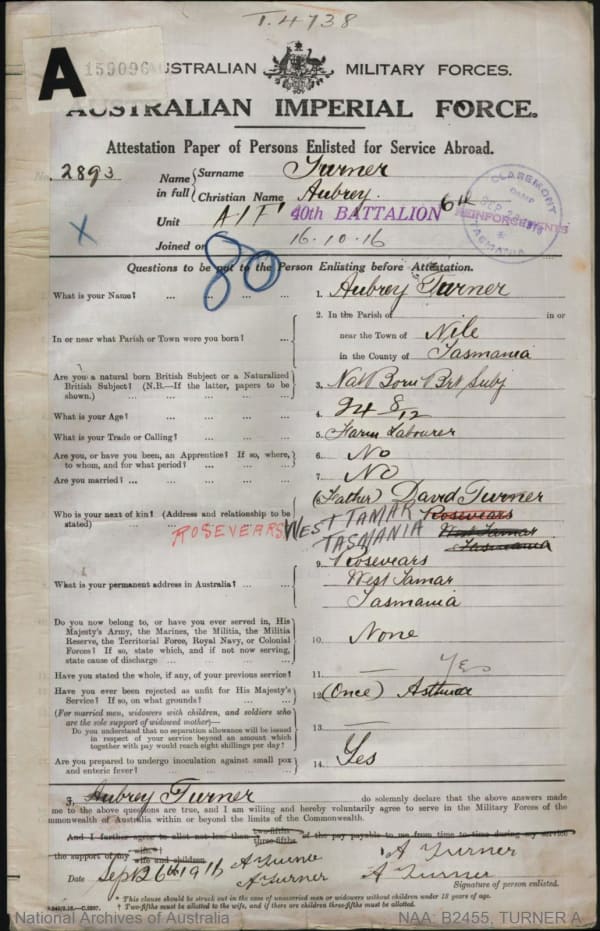 T.4738
A 159096
AUSTRALIAN MILITARY FORCES.
AUSTRALIAN IMPERIAL FORCE.
Attestation Paper of Persons Enlisted for Service Abroad.
No. 2893
Name in full { Surname Turner
Christian Name Aubrey.
Unit AIF 40th BATTALION 6th REINFORCEMENTS
CLAREMONT CAMP SEP 1916 TASMANIA
X
Joined on 16.10.16
80
Questions to be put to the Person Enlisting before Attestation.
What is your Name? ... ... ... ... 1. Aubrey Turner
In or near what Parish or Town were you born? ... 2. In the Parish of in or
near the Town of Nile
in the County of Tasmania
Are you a natural born British Subject or a Naturalized
British Subject? (N.B.—If the latter, papers to be
shown.) ... ... ... ... 3. Nat Born Brt Subj
What is your Age? ... ... ... ... 4. 24 8/12
What is your Trade or Calling? ... ... ... 5. Farm Labourer
Are you, or have you been, an Apprentice? If so, where,
to whom, and for what period? ... ... ... 6. No
Are you married? ... ... ... ... 7. No
Who is your next of kin? (Address and relationship to be
stated) 8. (Father) David Turner
Rosevears
West Tamar
Tasmania
ROSEVEARS WEST TAMAR
TASMANIA
What is your permanent address in Australia? ... ... 9. Rosevears
West Tamar
Tasmania
Do you now belong to, or have you ever served in, His
Majesty's Army, the Marines, the Militia, the Militia
Reserve, the Territorial Force, Royal Navy, or Colonial
Forces? If so, state which, and if not now serving,
state cause of discharge ... ... ... ... 10. None
Have you stated the whole, if any, of your previous service? 11. — Yes
Have you ever been rejected as unfit for His Majesty's
Service? If so, on what grounds? ... ... 12. (Once) Asthma
(For married men, widowers with children, and soldiers who
are the sole support of widowed mother)—
Do you understand that no separation allowance will be issued
in respect of your service beyond an amount which
together with pay would reach eight shillings per day? 13. —
Are you prepared to undergo inoculation against small pox
and enteric fever? ... ... ... ... 14. Yes
I, Aubrey Turner do solemnly declare that the above answers made
me to the above questions are true, and I am willing and hereby voluntarily agree to serve in the Military Forces of the
mmonwealth of Australia within or beyond the limits of the Commonwealth.
And I further agree to allot not less than two-fifths three-fifths of the pay payable to me from time to time during my service
the support of my wife wife and children
A Turner A Turner
Date Sept 26th 1916 A Turner A Turner
Signature of person enlisted.
* This clause should be struck out in the case of unmarried men or widowers without children under 18 years of age.
† Two-fifths must be allotted to the wife, and if there are children three-fifths must be allotted.
National Archives of Australia
NAA: B2455, TURNER A